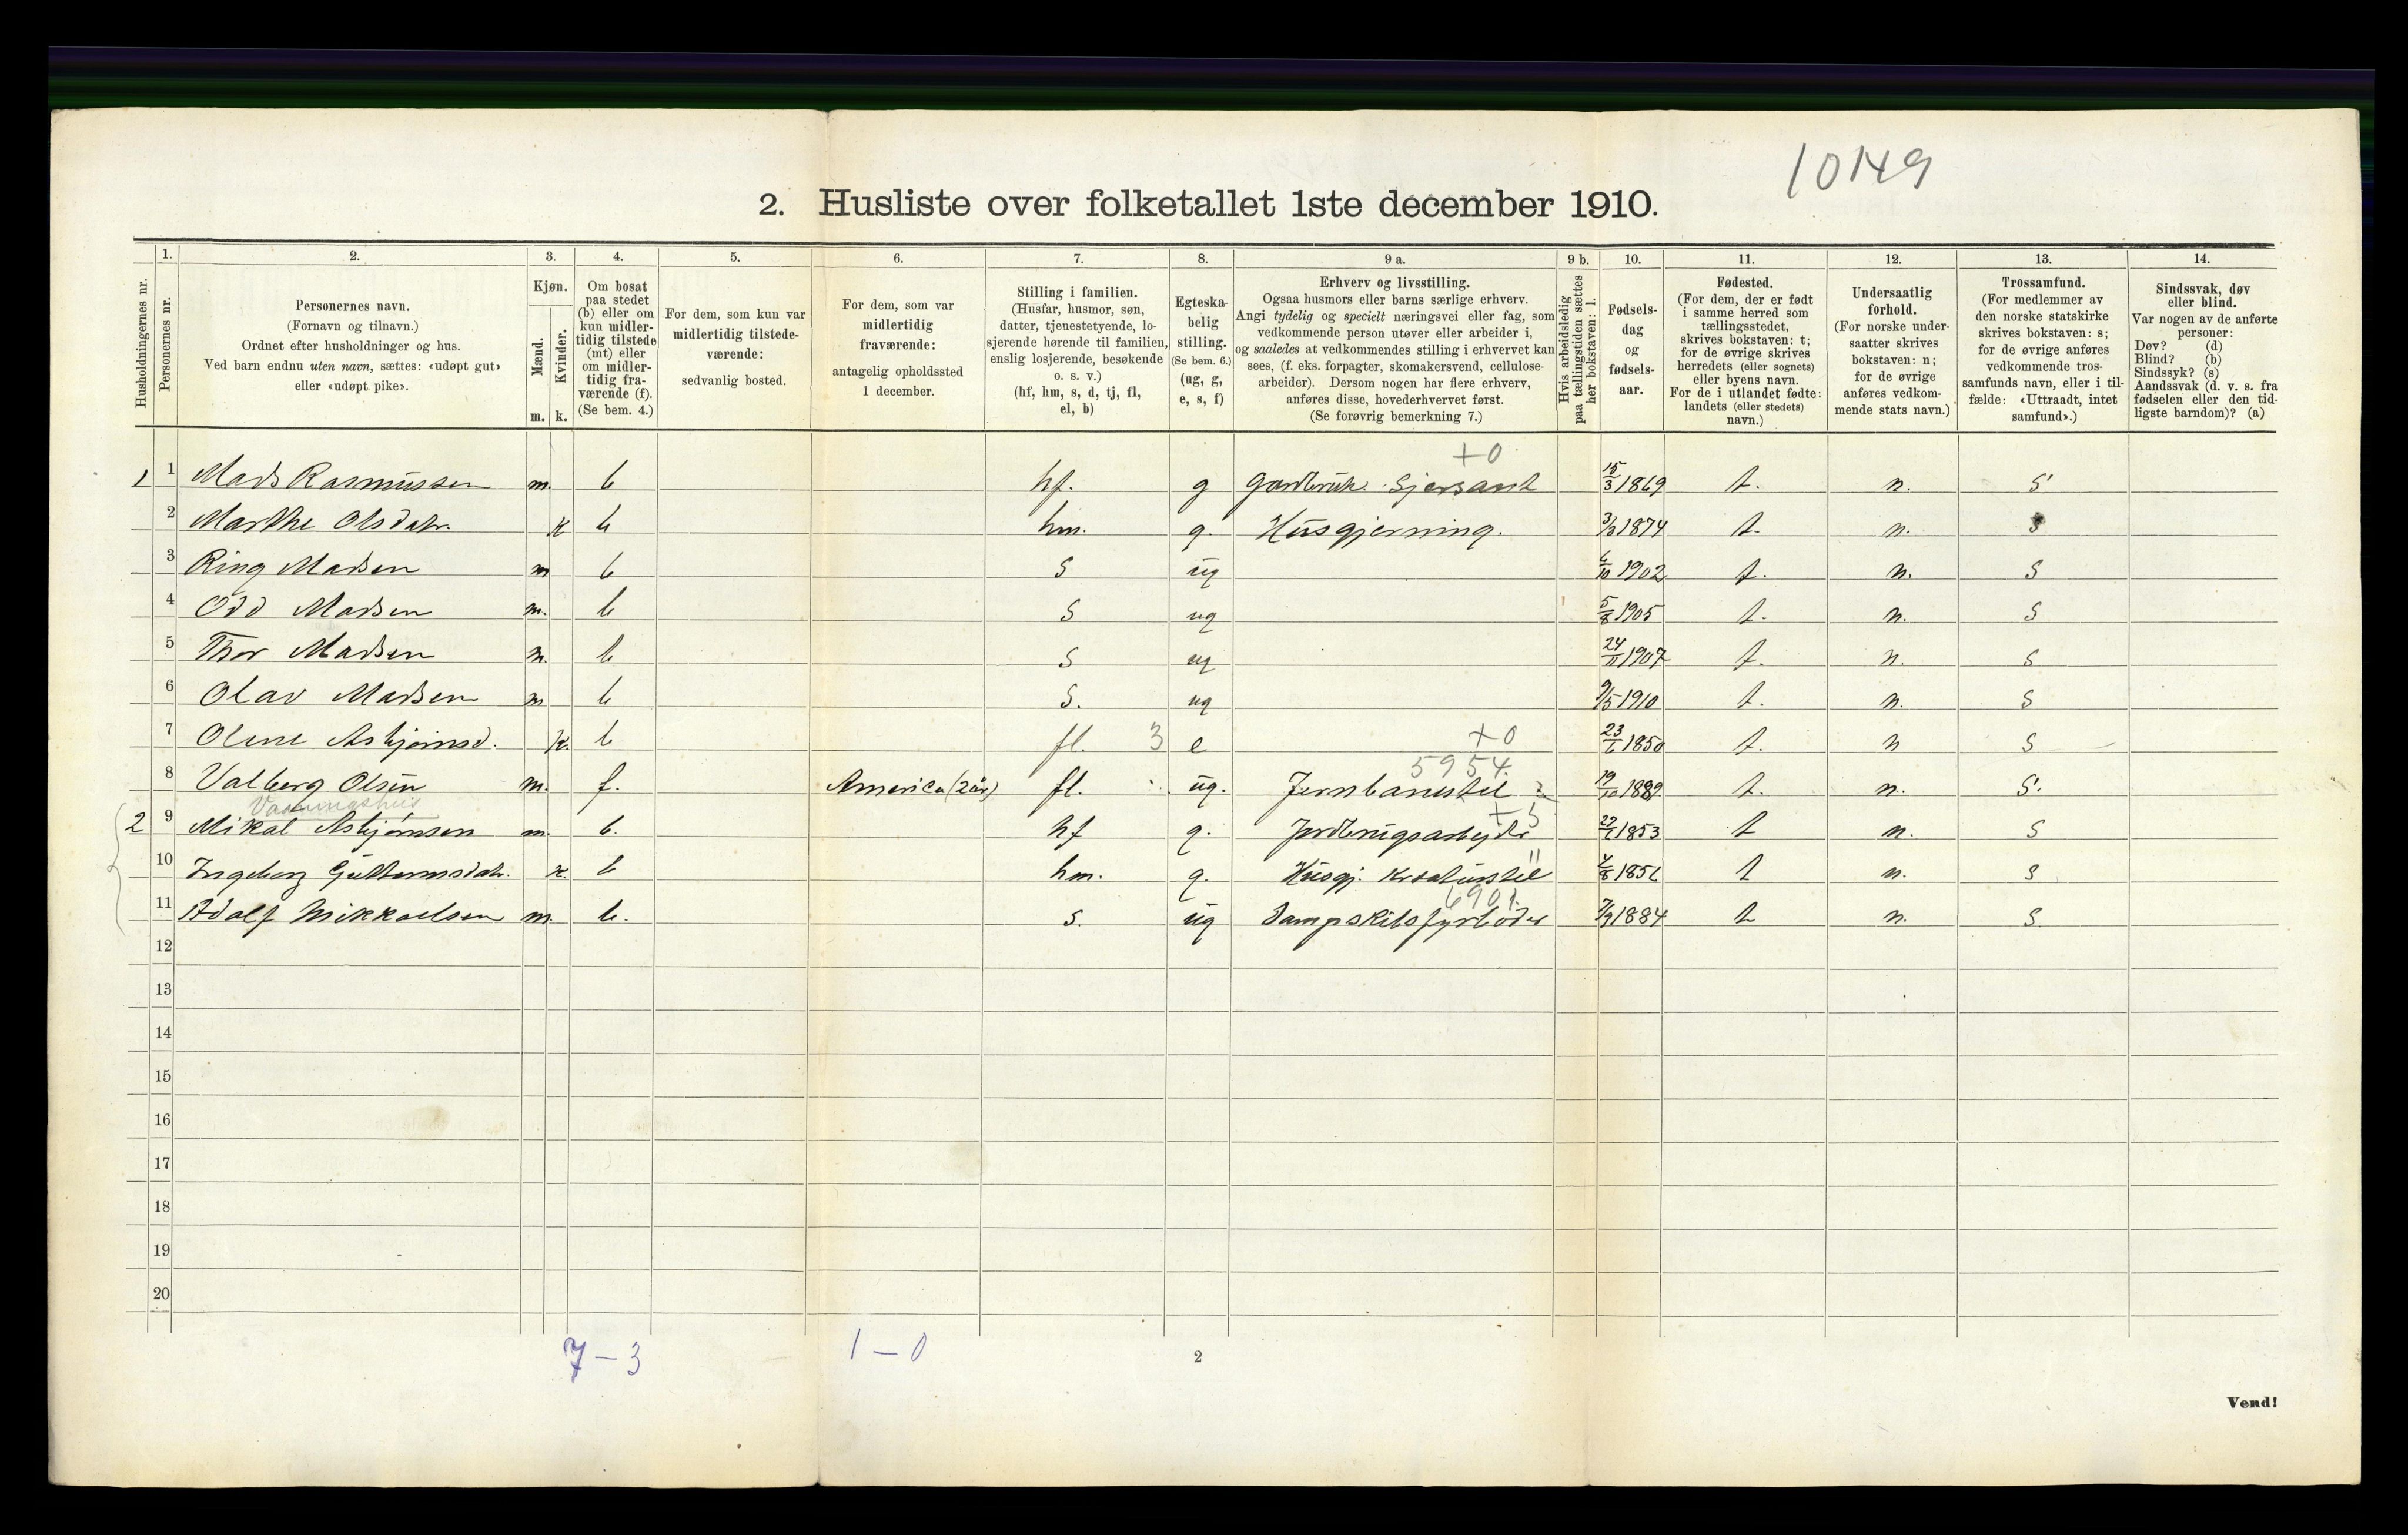 10149
2. Husliste over folketallet 1ste december 1910.
Husholdningernes nr.
1.
Personernes nr.
2.
Personernes navn.
(Fornavn og tilnavn.)
Ordnet efter husholdninger og hus.
Ved barn endnu uten navn, sættes: «udøpt gut»
eller «udøpt pike».
3.
Kjøn.
Mænd.
Kvinder.
m. k.
4.
Om bosat
paa stedet
(b) eller om
kun midler-
tidig tilstede
(mt) eller
om midler-
tidig fra-
værende (f).
(Se bem. 4.)
5.
For dem, som kun var
midlertidig tilstede-
værende:
sedvanlig bosted.
6.
For dem, som var
midlertidig
fraværende:
antagelig opholdssted
1 december.
7.
Stilling i familien.
(Husfar, husmor, søn,
datter, tjenestetyende, lo-
sjerende hørende til familien,
enslig losjerende, besøkende
o. s. v.)
(hf, hm, s, d, tj, fl,
el, b)
8.
Egteska-
belig
stilling.
(Se bem. 6.)
(ug, g,
e, s, f)
9 a.
Erhverv og livsstilling.
Ogsaa husmors eller barns særlige erhverv.
Angi tydelig og specielt næringsvei eller fag, som
vedkommende person utøver eller arbeider i,
og saaledes at vedkommendes stilling i erhvervet kan
sees, (f. eks. forpagter, skomakersvend, cellulose-
arbeider). Dersom nogen har flere erhverv,
anføres disse, hovederhvervet først.
(Se forøvrig bemerkning 7.)
9 b.
Hvis arbeidsledig
paa tællingstiden sættes
her bokstaven: l.
10.
Fødsels-
dag
og
fødsels-
aar.
11.
Fødested.
(For dem, der er født
i samme herred som
tællingsstedet,
skrives bokstaven: t;
for de øvrige skrives
herredets (eller sognets)
eller byens navn.
For de i utlandet fødte:
landets (eller stedets)
navn.)
12.
Undersaatlig
forhold.
(For norske under-
saatter skrives
bokstaven: n;
for de øvrige
anføres vedkom-
mende stats navn.)
13.
Trossamfund.
(For medlemmer av
den norske statskirke
skrives bokstaven: s;
for de øvrige anføres
vedkommende tros-
samfunds navn, eller i til-
fælde: «Uttraadt, intet
samfund».)
14.
Sindssvak, døv
eller blind.
Var nogen av de anførte
personer:
Døv? (d)
Blind? (b)
Sindssyk? (s)
Aandssvak (d. v. s. fra
fødselen eller den tid-
ligste barndom)? (a)
+0
1 1 Mads Rasmussen m. b hf. g Gardbruk. Sjersant 15/3 1869 t. n. s
2 Marthe Olsdatr. k b hm. g. Husgjerning. 3/3 1874 t. n. s
3 Ring Madsen m b s ug 6/10 1902 t. n. s
4 Odd Madsen m. b s ug 5/8 1905 t. n. s
5 Thor Madsen m. b s ug 24/11 1907 t. n. s
6 Olav Madsen m b s. ug 9/5 1910 t. n. s
7 Olene Asbjørnsd. k. b fl. 3 e +0 23/6 1850 t. n s
5954
8 Valberg Olsen m. f. America (2 år) fl. ug. Jernbanestil 19/10 1889 t. n. s.
Vaaningshus +5
2 9 Mikal Asbjørnsen m. b. hf g. Jordbrugsarbejder 1853 t n. s
10 Ingeborg Guttormsdatr. k. b hm. g. Husgj. Kreaturstel " t n. s
6901.
11 Adolf Mikkaelsen m. b. s. ug Dampskibsfyrbøder 7/9 1884 t n. s.
12
13
14
15
16
17
18
19
20
7 – 3 1 – 0
2
Vend!